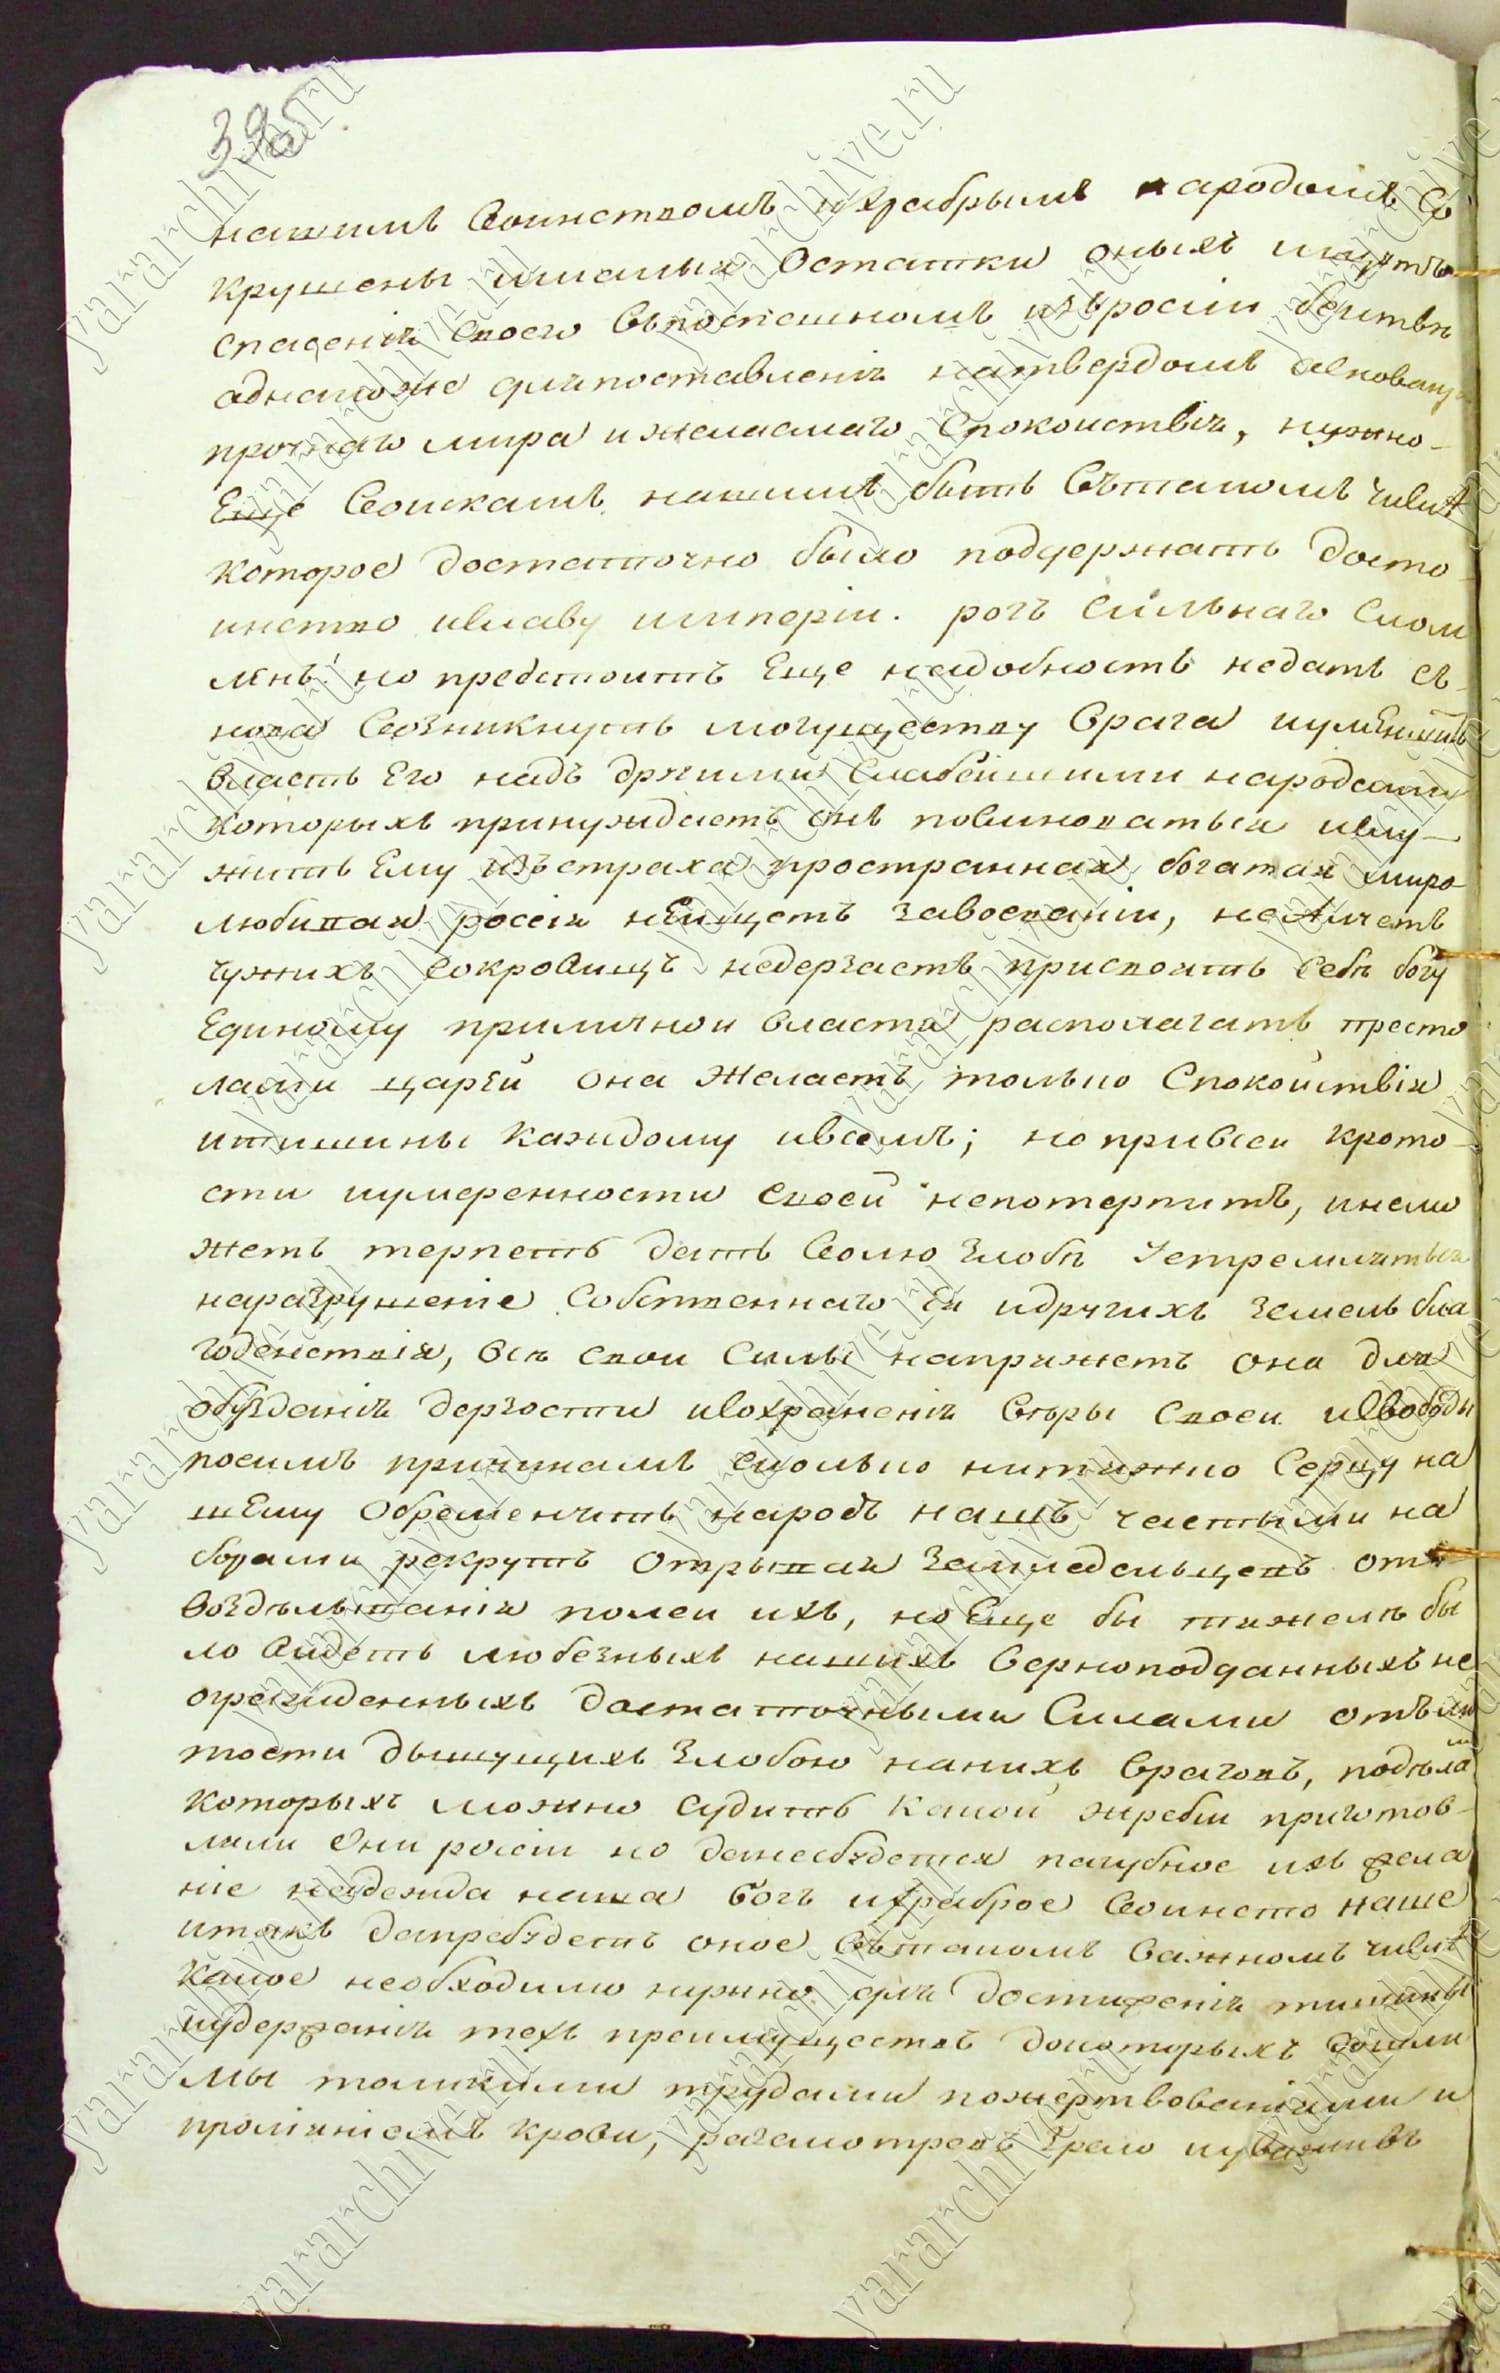 395
нашимъ воинствомъ ихрабрымъ народомъ со
крушены ималыя остатки оныхъ ищутъ
спасенія своего въпоспешномъ изъросіи бегствъ
аднакоже дляпоставленія натвердомъ основаніи
прочнаго мира ижелаемаго спокоиствія, нужно
Еще воискамъ нашимъ быть вътакомъ числѣ
которое достаточно было подъдержать досто
инство иславу имперіи. рогъ сильнаго слом
ленъ! но предстоитъ Еще надобность недать съ
нова возникнуть могуществу врага иуменшить
власть Его надъ другими слабейшими народами
которыхъ принуждаетъ онъ повиноваться ислу
жить Ему изъстраха пространная, богатая имиро
любивая росеія неищетъ завоеваніи, неалчетъ
чужихъ сокровищъ недерзаетъ присвоить себъ богу
Единому приличнои власти располагать престо
лами царей она желаетъ только спокойствія
итишины каждому ивсемъ; но привсеи крото
сти иумеренности своей непотерпитъ, инемо
жетъ терпеть дать волю злобъ устремляться
наразрушеніе собственнаго ся идругихъ земель бла
годенствія, всъ свои силы напряжетъ она для
обузданія дерзости исохраненія въры своеи исвободы
посимъ причинамъ сколько нитяжко серцу на
шему обременять народъ нашъ частыми на
борами рекрутъ отрывая земледельцевъ отъ
воздълыванія полеи ихъ, но Еще бы тяжелъ бы
ло видеть любезныхъ нашихъ верноподданныхъ не
огражденныхъ достаточными силами отъ лю
тости дышущихъ злобою нанихъ враговъ, подълам
которыхъ можно судить какой жребіи приготов
ляли они росіи но данесбудется пагубное ихъ жела
ніе надежда наша богъ ихраброе воинсто наше
итакъ дапребудетъ оное въткакомъ важномъ числѣ
какое необходимо нужно для достиженія тишины
иудержанія техъ преимуществъ докоторыхъ дошли
мы толикими трудами пожертвованіями и
пролияніемъ крови, разсмотревъ зрело иуваживъ